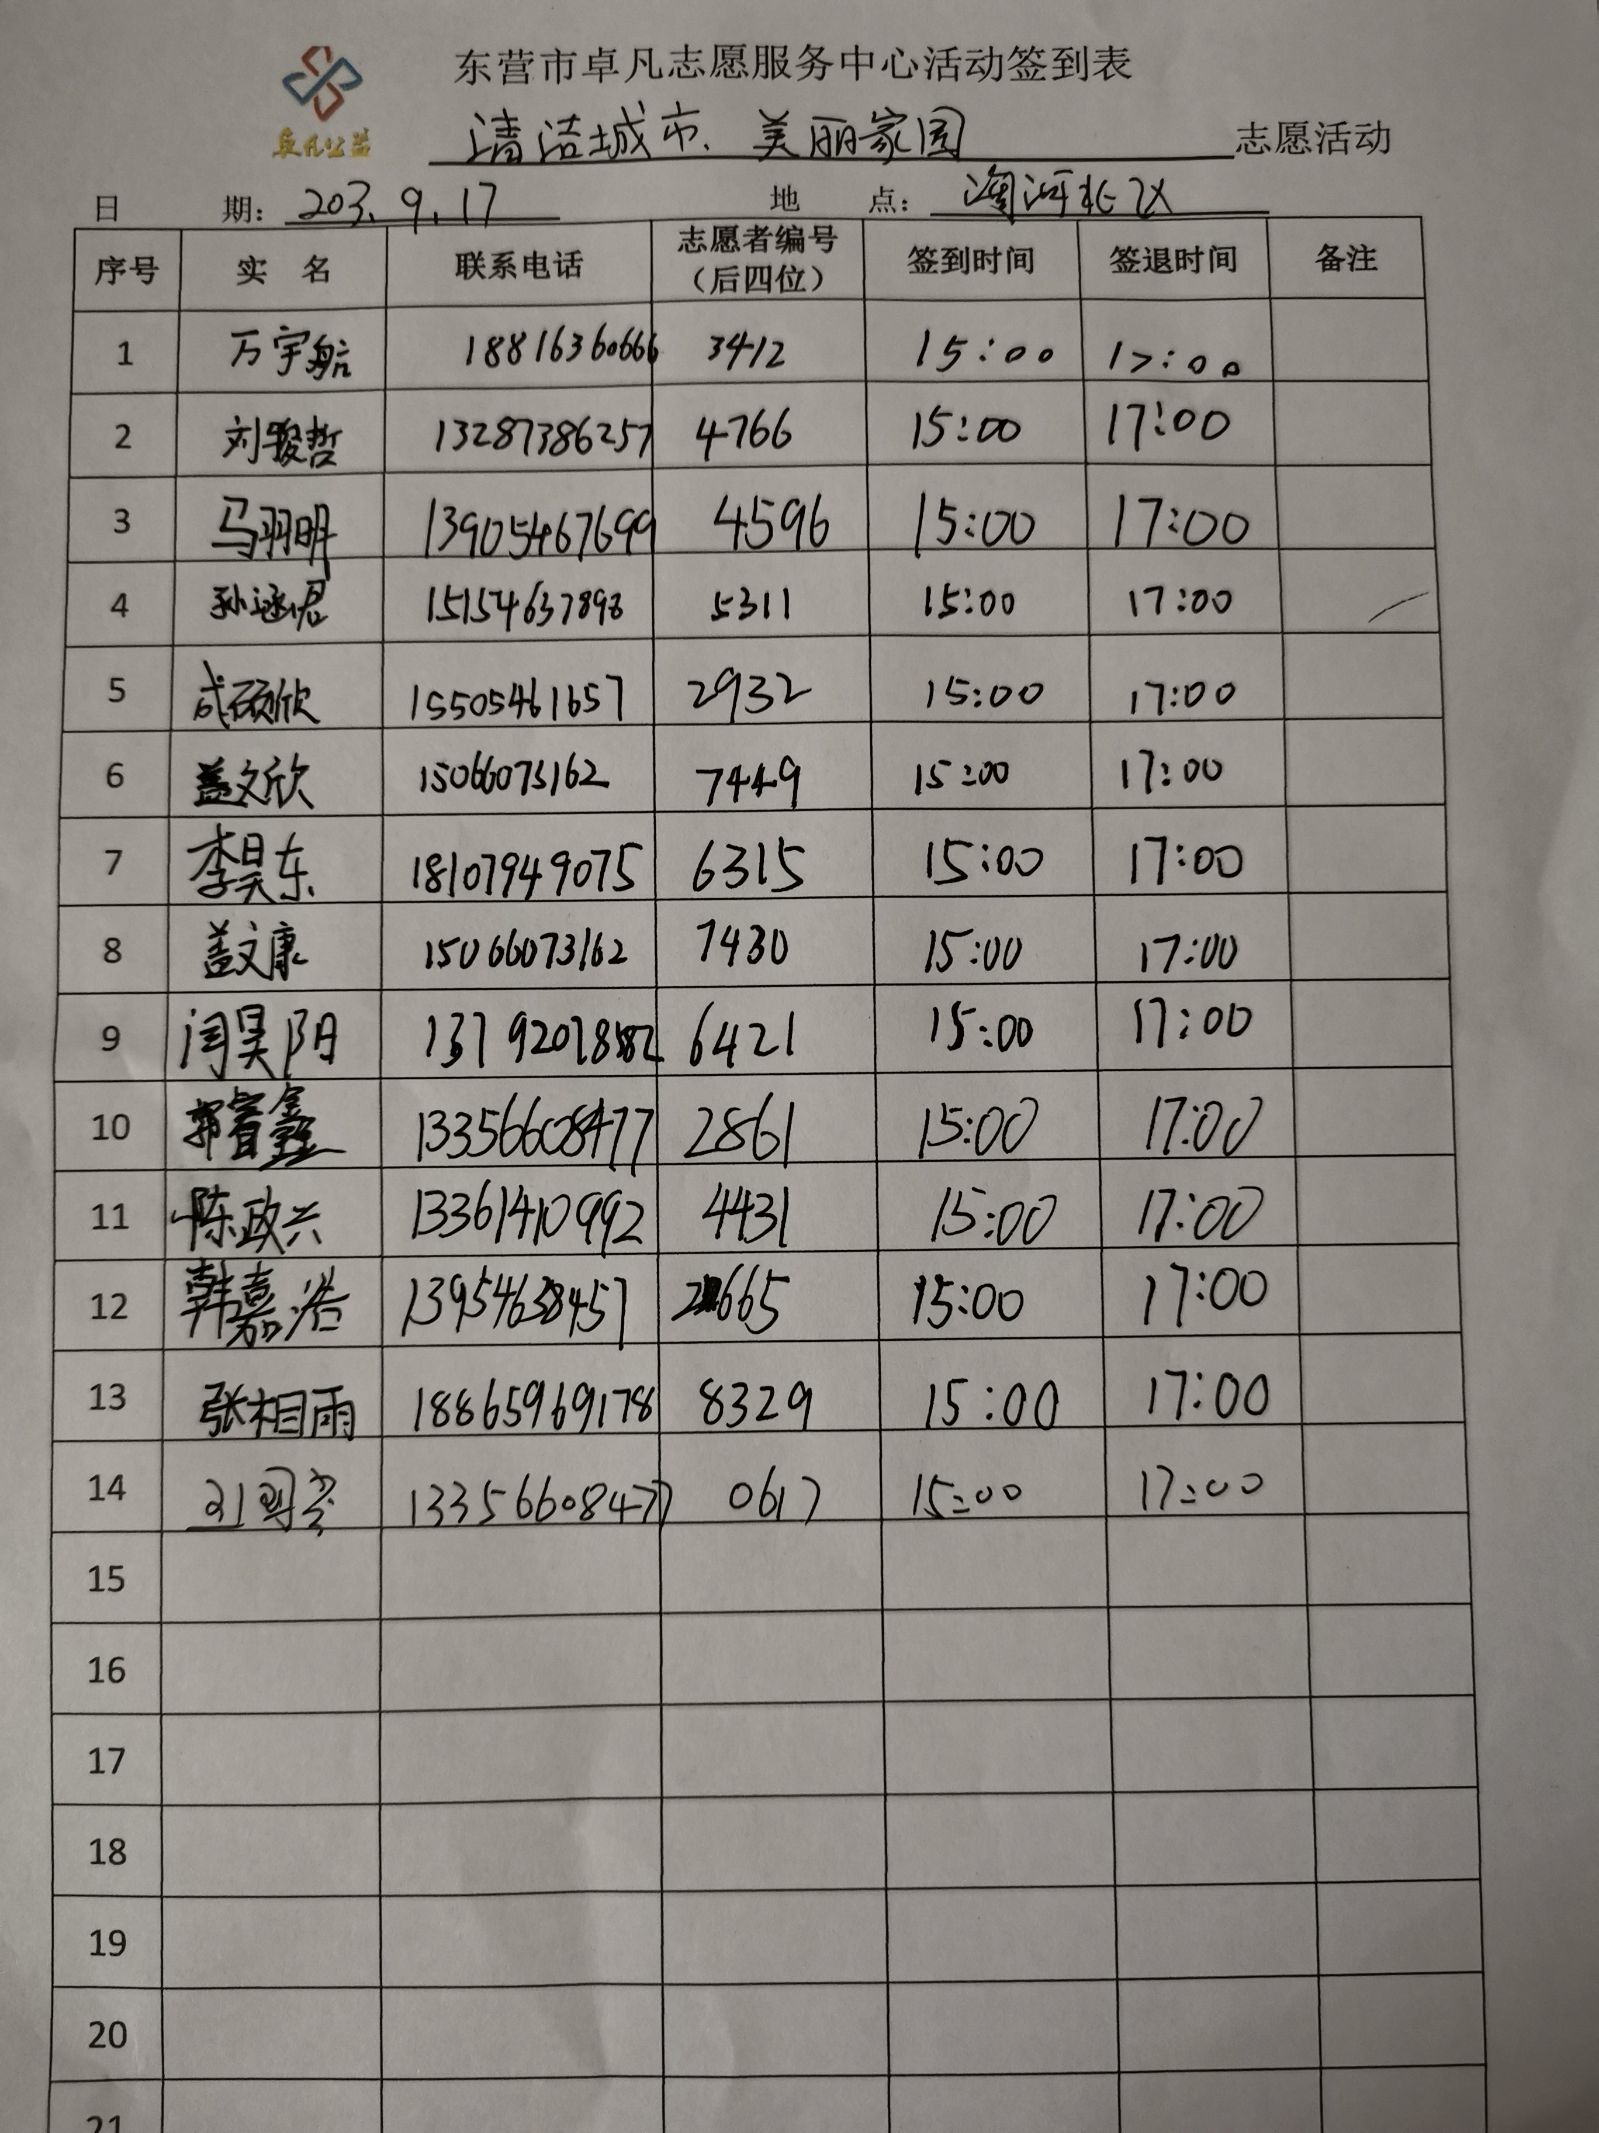 东营市卓凡志愿服务中心活动签到表
卓凡公益
清洁城市、美丽家园 志愿活动
日 期: 203.9.17 地 点: 河北区
序号 实 名 联系电话 志愿者编号（后四位） 签到时间 签退时间 备注
1 万宇航 18816360666 3412 15:00 17:00
2 刘骏哲 13287386257 4766 15:00 17:00
3 马羽明 13905467699 4596 15:00 17:00
4 孙 君 15154637898 5311 15:00 17:00
5 成硕欣 15505461657 2932 15:00 17:00
6 盖文欣 15066073162 7449 15:00 17:00
7 李昊东 18107949075 6315 15:00 17:00
8 盖文康 15066073162 7430 15:00 17:00
9 闫昊阳 6421 15:00 17:00
10 郭睿鑫 13356608477 2861 15:00 17:00
11 陈政兴 13361410992 4431 15:00 17:00
12 韩嘉浩 13954638457 2665 15:00 17:00
13 张相雨 18865969178 8329 15:00 17:00
14 13356608477 0617 15:00 17:00
15
16
17
18
19
20
21